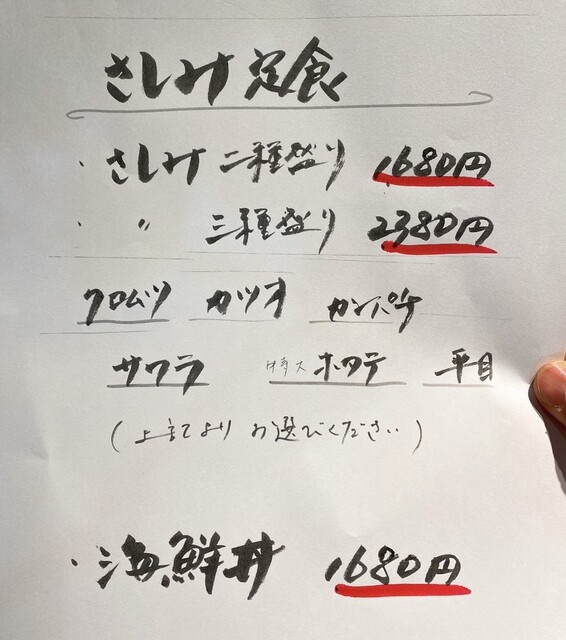 さしみ定食
・さしみ 二種盛り 1680円
・〃 三種盛り 2380円
クロムツ カツオ カンパチ
サワラ ホタテ 平目
(上記よりお選びください)
・海鮮丼 1680円